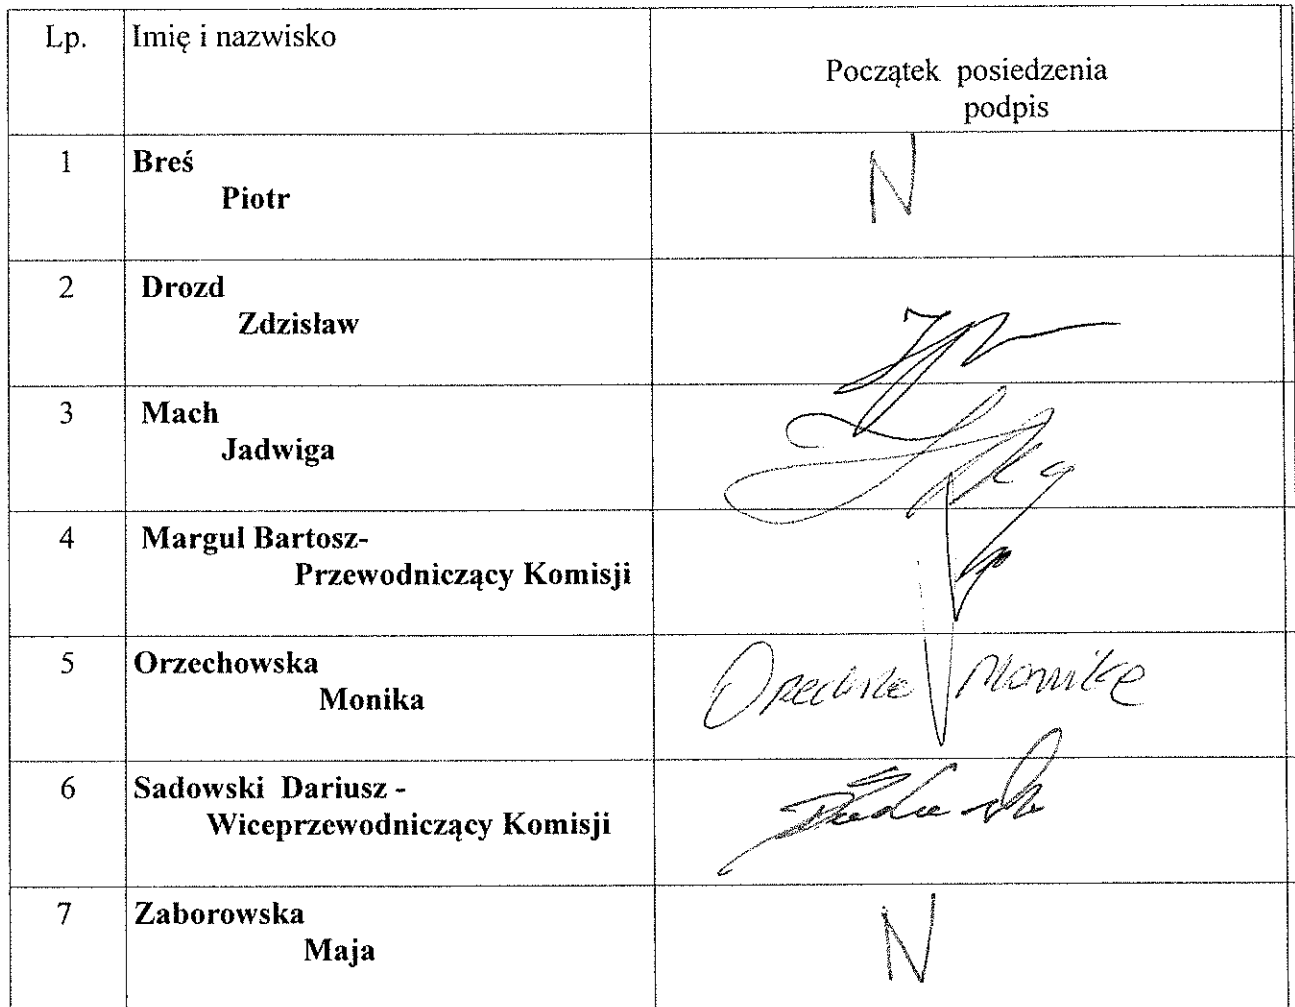 Lp. Imię i nazwisko
Początek posiedzenia
podpis
1 Breś
Piotr
N
2 Drozd
Zdzisław
3 Mach
Jadwiga
4 Margul Bartosz-
Przewodniczący Komisji
5 Orzechowska
Monika
6 Sadowski Dariusz -
Wiceprzewodniczący Komisji
7 Zaborowska
Maja
N